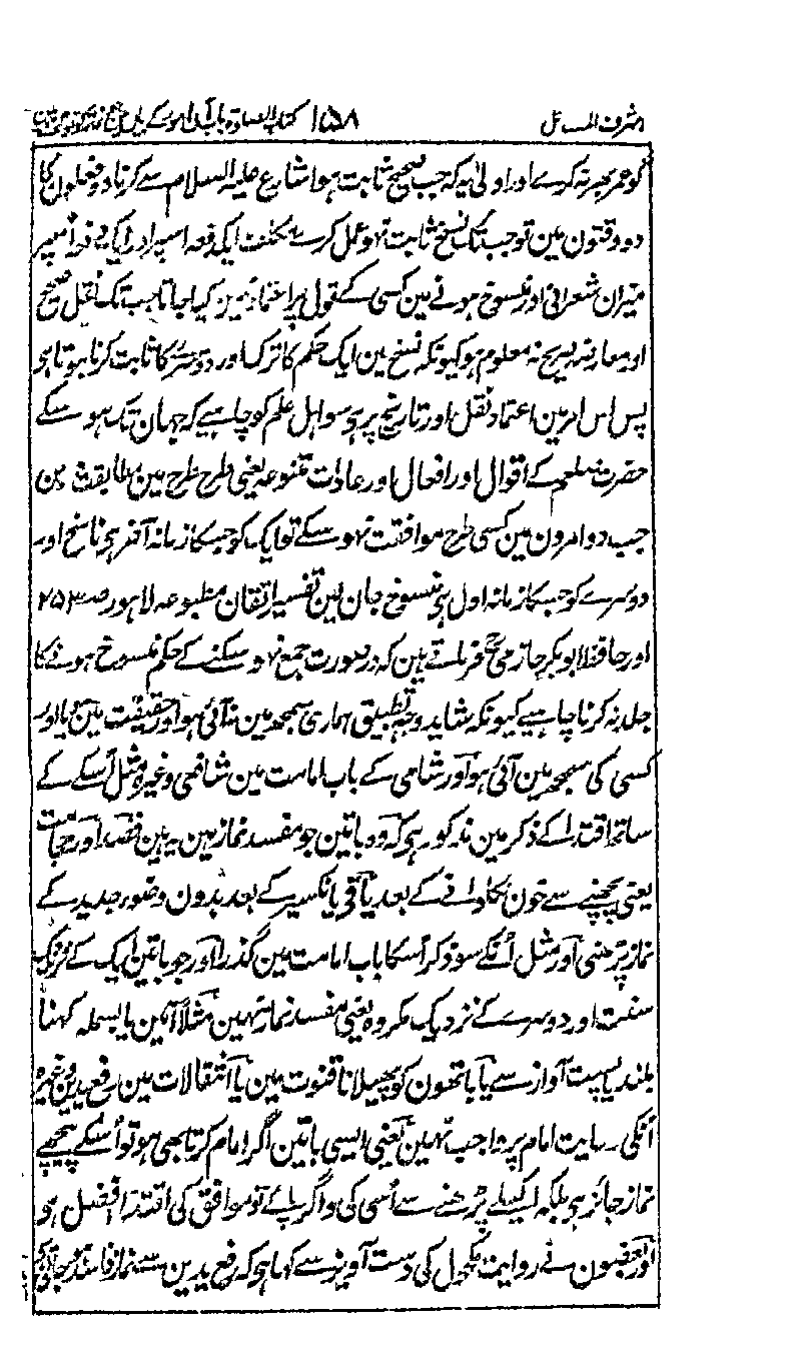 اشرف المسائل ۱۵۸ کتاب الصلوۃ باب
کو عمر بھر نہ کرے اور اولی یہ کہ جب صحیح ثابت ہوا شارع علیہ السلام سے کرنا دو فعلون کا
دو وقتون مین تو جب تک نسخ ثابت نہو عمل کرے مکلف ایک دفعہ اسپر اور ایک دفعہ اسپر
میزان شعرانی اور منسوخ ہونے مین کسی کے قول پر اعتماد نہین کیا جاتا جب تک نقل صحیح
اور معارضہ صریح نہ معلوم ہو کیونکہ نسخ مین ایک حکم کا ترک اور دوسرے کا ثابت کرنا ہوتا ہو
پس اس امر مین اعتماد نقل اور تاریخ پر ہو سو اہل علم کو چاہیے کہ جہان تک ہو سکے
حضرت صلعم کے اقوال اور افعال اور عادات متنوعہ یعنی طرح طرح مین مطابقت دین
جب دو امرون مین کسی طرح موافقت نہو سکے تو ایک کو جسکا زمانہ آخر ہو ناسخ اور
دوسرے کو جسکا زمانہ اول ہی منسوخ جان لین تفسیر اتقان مطبوعہ لاہور صـ ۲۵۳
اور حافظ ابو بکر حازمی فرماتے ہین کہ در صورت جمع نہو سکنے کے حکم منسوخ ہونے کا
جلد نہ کرنا چاہیے کیونکہ شاید وجہ تطبیق ہماری سمجھ مین نہ آئی ہو اور حقیقت مین یا اور
کسی کی سمجھ مین آئی ہو اور شامی کے باب امامت مین شافعی وغیرہ مثل اُسکے کے
ساتھ اقتدا کے ذکر مین مذکور ہی کہ وہ باتین جو مفسد نماز ہین یہ ہین فصد اور حجامت
یعنی پچھنے سے خون نکلوانے کے بعد یا قی یا نکسیر کے بعد بدون وضو جدید کے
نماز پڑھنی اور مثل اُنکے سو ذکر اُسکا باب امامت مین گذرا اور جو باتین ایک کے نزدیک
سنت اور دوسرے کے نزدیک مکروہ یعنی مفسد نماز نہین مثلاً آمین یا بسملہ کہنا
بلند یا پست آواز سے یا ہاتھون کو پھیلانا قنوت مین یا انتقالات مین رفع یدین وغیرہ
اُنکی رعایت امام پر واجب نہین یعنی ایسی باتین اگر امام کرتا بھی ہو تو اُسکے پیچھے
نماز جائز ہو بلکہ اکیلے پڑھنے سے اُسی کی و اگر پائے تو موافق کی اقتدا افضل ہو
اور بعضون نے روایت مکحول کی دست آویز سے کہا ہو کہ رفع یدین سے نماز فاسد ہو جاتی